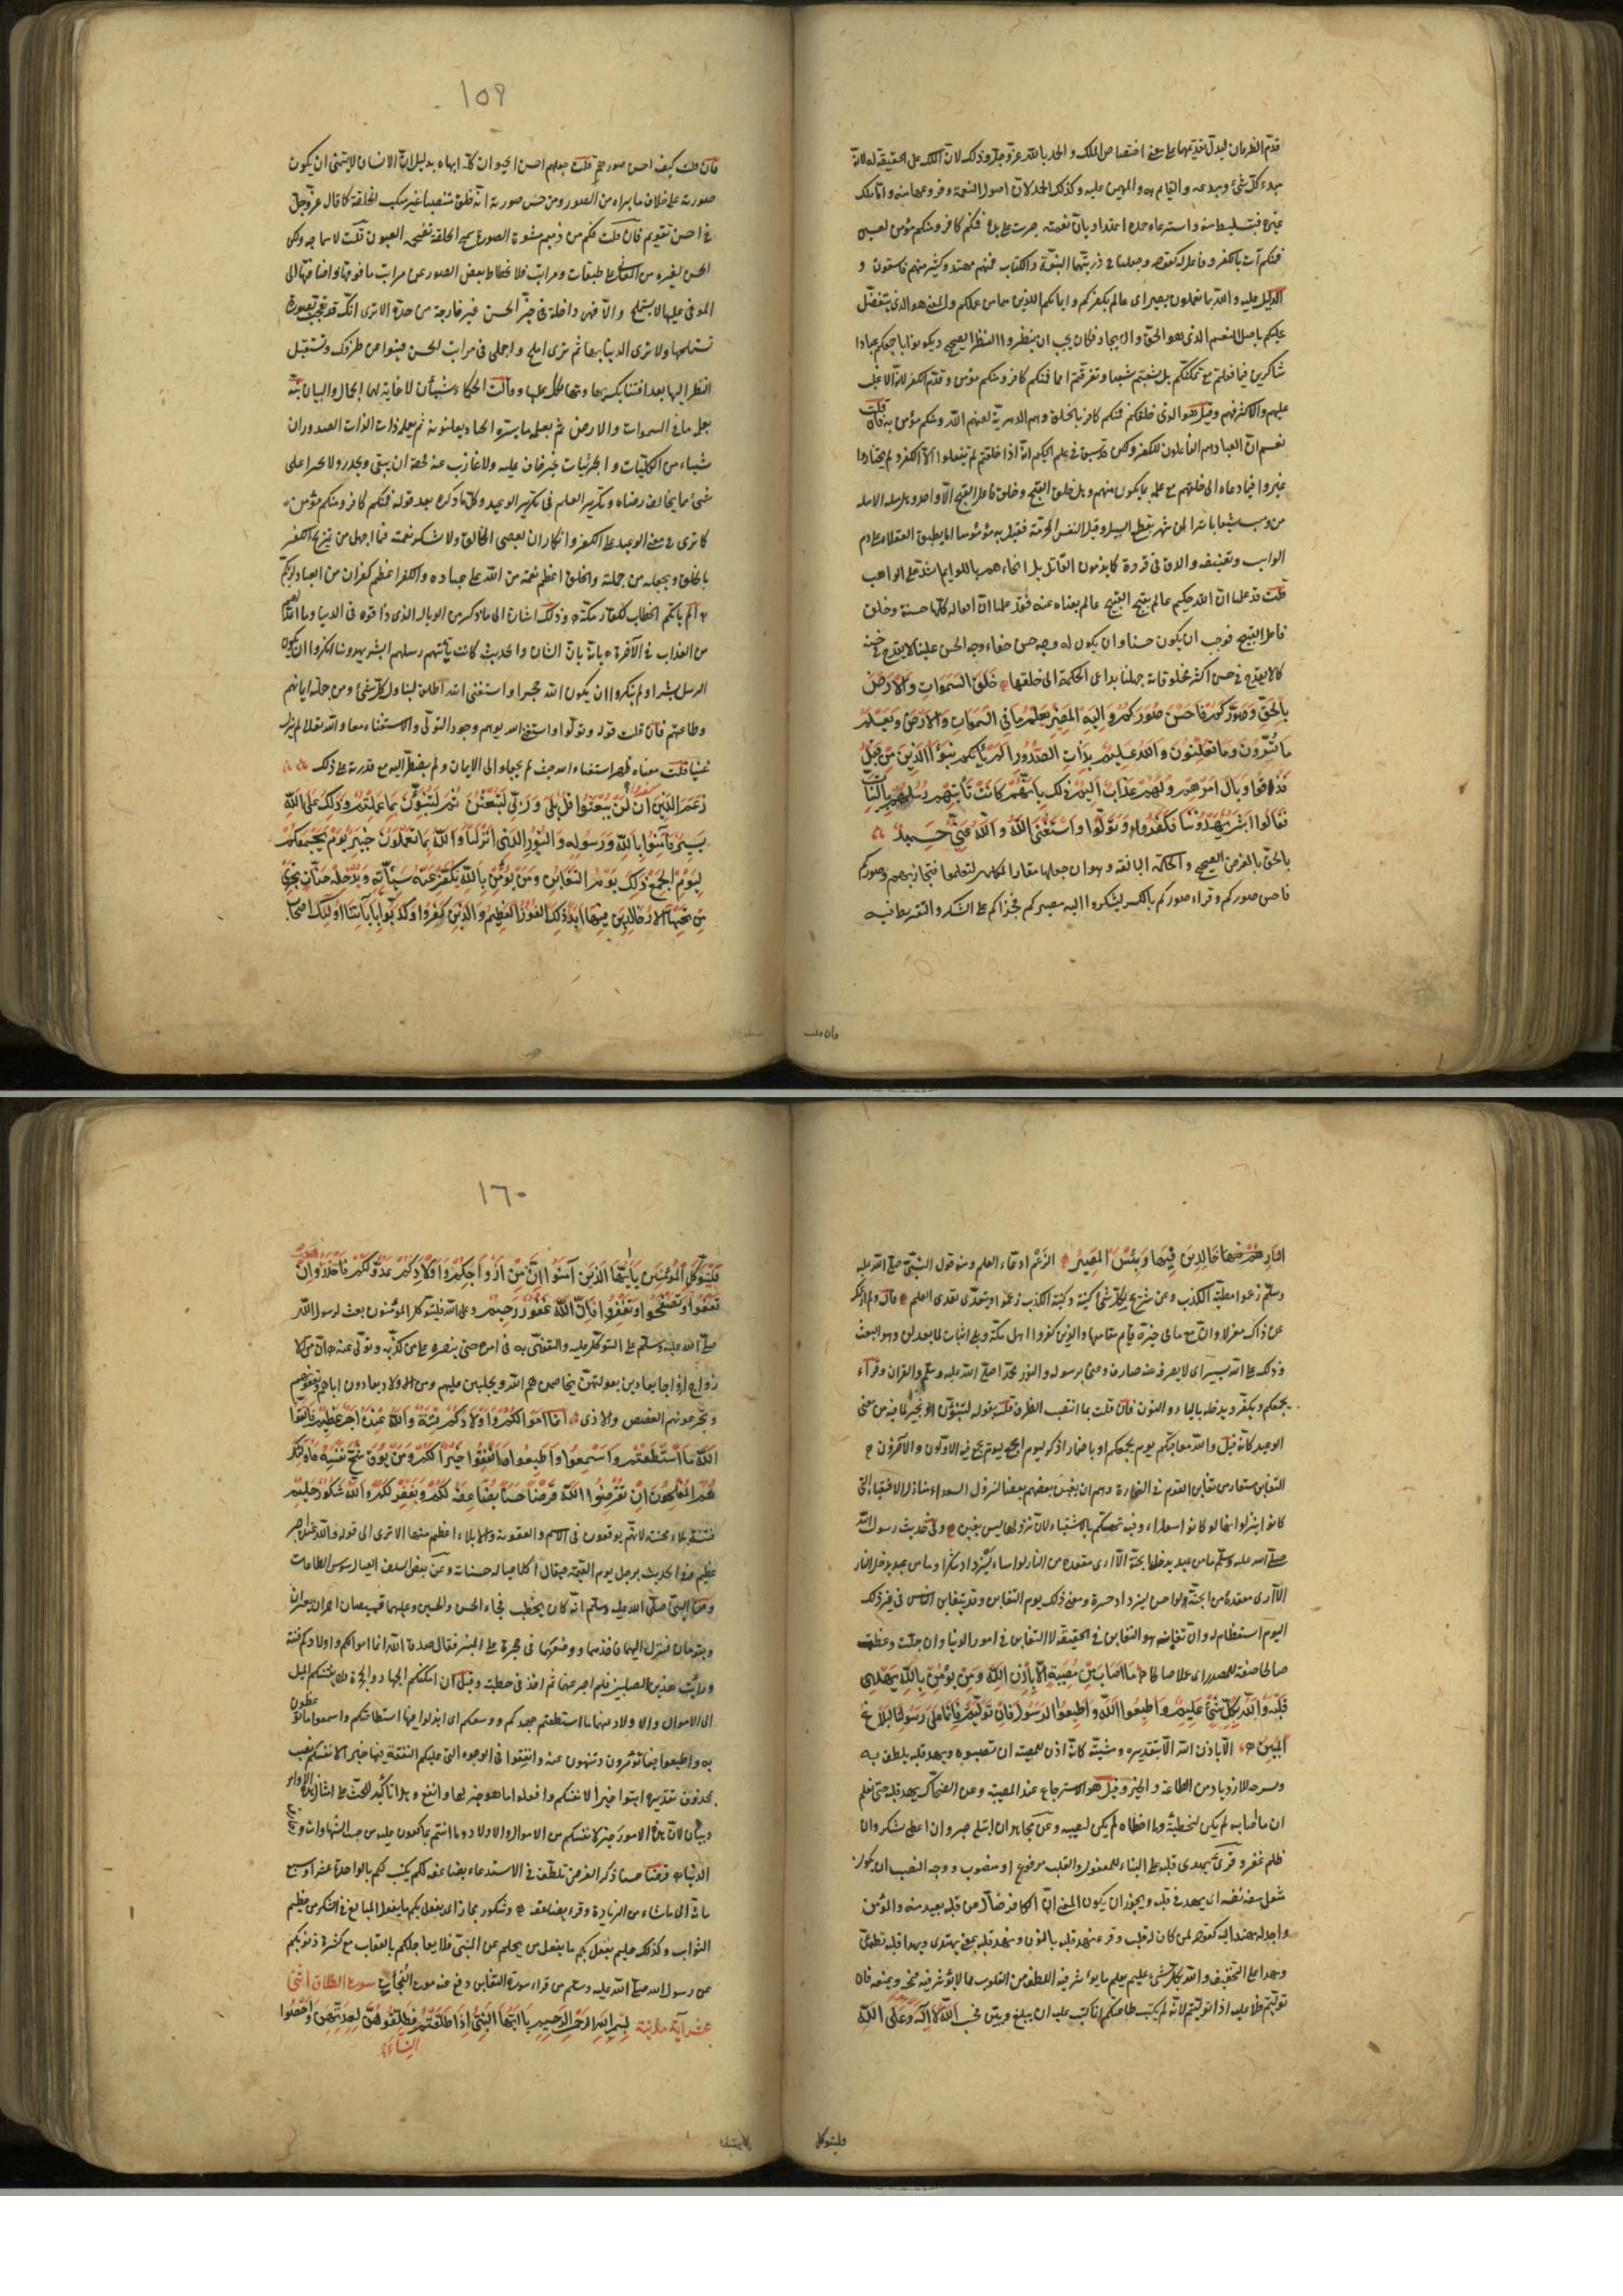 قدّم الظرفان ليدلّ بتقديمهما على معنى اختصاص الملك والحمد بالله عزّ وجلّ وذلك لانّ الملك على الحقيقة له لانّه
مبدء كلّ شئ ومبدعه والقائم به والمهيمن عليه وكذلك الحمد لانّ اصول النعمة وفروعها منه وامّا ملك
غيره فتسليط منه واسترعاء وحمده اعتداد بانّ نعمته جرت على يده فمنكم كافر ومنكم مؤمن يعنى
فمنكم آت بالكفر وفاعل له كقوله وجعلنا فى ذريتهما النبوّة والكتاب فمنهم مهتد وكثير منهم فاسقون و
الدليل عليه والله بما تعملون بصير اى عالم بكفركم وايمانكم اللذين هما من عملكم والمعنى هو الذى تفضّل
عليكم باصل النعم الذى هو الخلق والايجاد فكان يجب ان ينظروا النظر الصحيح ويكونوا باجمعكم عبادا
شاكرين فما فعلتم مع تمكّنكم بل تشعبتم شعبا وتفرقتم امما فمنكم كافر ومنكم مؤمن وقدّم الكفر لانّه الاغلب
عليهم والاكثر فيهم وقيل هو الذى خلقكم فمنكم كافر بالخلق وهم الدهريّة لعنهم الله ومنكم مؤمن به فان قلت
نعم انّ العباد هم الفاعلون للكفر ولكن قد سبق فى علم الحكيم انّه اذا خلقهم لم يفعلوا الّا الكفر ولم يختاروا
غيره فما دعاه الى خلقهم مع علمه بما يكون منهم وهل خلق القبيح وخلق فاعل القبيح الّا واحد وهل مثله الا مثل
من وهب سيفا باترا لمن شهر بقطع السبيل وقتل النفس المحرّمة فقتل به مؤمنا اما يطبق العقلاء على ذم
الواهب وتعنيفه والدق فى فروته كما يذمون القاتل بل انحاءهم باللوايم اشدّ على الواهب
قلت قد علمنا انّ الله حكيم عالم بقبح القبيح عالم بغناه عنه فقد علمنا انّ افعاله كلّها حسنة وخلق
فاعل القبيح فوجب ان يكون حسنا وان يكون له وجه حسن خفاء وجه الحسن علينا لا يقدح فى حسنه
كما لا يقدح فى حسن اكثر مخلوقاته جهلنا بداعى الحكمة الى خلقها خَلَقَ السَّمَوَاتِ وَالْأَرْضَ
بِالْحَقِّ وَصَوَّرَكُمْ فَأَحْسَنَ صُوَرَكُمْ وَإِلَيْهِ الْمَصِيرُ يَعْلَمُ مَا فِي السَّمَوَاتِ وَالْأَرْضِ وَيَعْلَمُ
مَا تُسِرُّونَ وَمَا تُعْلِنُونَ وَاللَّهُ عَلِيمٌ بِذَاتِ الصُّدُورِ أَلَمْ يَأْتِكُمْ نَبَؤُا الَّذِينَ مِنْ قَبْلُ
فَذَاقُوا وَبَالَ أَمْرِهِمْ وَلَهُمْ عَذَابٌ أَلِيمٌ ذَلِكَ بِأَنَّهُمْ كَانَتْ تَأْتِيهِمْ رُسُلُهُمْ بِالْبَيِّنَاتِ
فَقَالُوا أَبَشَرٌ يَهْدُونَنَا فَكَفَرُوا وَتَوَلَّوْا وَاسْتَغْنَى اللَّهُ وَاللَّهُ غَنِيٌّ حَمِيدٌ
بالحقّ بالغرض الصحيح والحكمة البالغة وهو ان جعلها مقارّ المكلفين ليعلموا فيجازيهم وصوركم
فاحسن صوركم وقراء صوركم بالكسر ليشكروا اليه مصيركم فجزاكم على الشكر والتفريط فيه
فان قلت
١٥٩
فان قلت كيف احسن صوركم قلت جعلهم احسن الحيوان كلّه ابهاه بدليل انّ الانسان لا يتمنّى ان يكون
صورته على خلاف ما يراه من الصور ومن حسن صورته انّه خلق منتصبا غير منكب الخلقة كما قال عزّ وجلّ
فى احسن تقويم فان قلت فكم من دميم مشوّه الصورة سمج الخلقة تقتحمه العيون قلت لا سماجة ولكن
الحسن كغيره من المعانى على طبقات ومراتب فلانحطاط بعض الصور عن مراتب ما فوقها واضافتها الى
الموفى عليها لا يستملح والّا فهى داخلة فى حيّز الحسن غير خارجة من حدّه الا ترى انّك قد تعجب بصورة
تستملحها ولا ترى الدنيا بها ثم ترى املح واجمل فى مراتب الحسن فينبوا عن طرفك وتستثقل
النظر اليها بعد افتتانك بها وتهالكك عليها وقالت الحكماء شيئان لا غاية لهما الجمال والبيان نبّه
بعلمه ما فى السموات والارض ثم بعلمه ما يسرّه العباد ويعلنونه ثم بعلمه ذات الصدور ان
شياء من الكليّات والجزئيات غير خاف عليه ولا عازب عنه فحقه ان يتقى ويحذر ولا يجرا على
شئ مما يخالف رضاه وتكرير العلم فى تكرير الوعيد وكل ما ذكره بعد قوله فمنكم كافر ومنكم مؤمن
كما ترى فى معنى الوعيد على الكفر وانكار ان يعصى الخالق ولا تشكر نعمته فما اجهل من يمزج الكفر
بالخلق ويجعله من جملته والخلق اعظم نعمة من الله على عباده والكفر اعظم كفران من العباد لربهم
الم ياتكم الخطاب لكفار مكّة وذلك اشارة الى ما ذكر من الوبال الذى ذاقوه فى الدنيا وما اعدّ لهم
من العذاب فى الآخرة بانّه بانّ الشان والحديث كانت تأتيهم رسلهم ابشر يهدوننا انكروا ان يكون
الرسل بشرا ولم ينكروا ان يكون الله حجرا واستغنى الله اطلق ليتناول كلّ شئ ومن جملته ايمانهم
وطاعتهم فان قلت قوله وتولّوا واستغنى الله يوهم وجود التولّى والاستغناء معا والله تعالى لم يزل
غنيا قلت معناه ظهر استغناء الله حيث لم يلجئهم الى الايمان ولم يضطرّهم اليه مع قدرته على ذلك
زَعَمَ الَّذِينَ كَفَرُوا أَنْ لَنْ يُبْعَثُوا قُلْ بَلَى وَرَبِّي لَتُبْعَثُنَّ ثُمَّ لَتُنَبَّؤُنَّ بِمَا عَمِلْتُمْ وَذَلِكَ عَلَى اللَّهِ
يَسِيرٌ فَآمِنُوا بِاللَّهِ وَرَسُولِهِ وَالنُّورِ الَّذِي أَنْزَلْنَا وَاللَّهُ بِمَا تَعْمَلُونَ خَبِيرٌ يَوْمَ يَجْمَعُكُمْ
لِيَوْمِ الْجَمْعِ ذَلِكَ يَوْمُ التَّغَابُنِ وَمَنْ يُؤْمِنْ بِاللَّهِ يُكَفِّرْ عَنْهُ سَيِّئَاتِهِ وَيُدْخِلْهُ جَنَّاتٍ تَجْرِي
مِنْ تَحْتِهَا الْأَنْهَارُ خَالِدِينَ فِيهَا أَبَدًا ذَلِكَ الْفَوْزُ الْعَظِيمُ وَالَّذِينَ كَفَرُوا وَكَذَّبُوا بِآيَاتِنَا أُولَئِكَ أَصْحَابُ
النَّارِ هُمْ فِيهَا خَالِدِينَ فِيهَا وَبِئْسَ الْمَصِيرُ الزعم ادعاء العلم ومنه قول النبىّ صلى الله عليه
وسلّم زعموا مطيّة الكذب وعن شريح لكلّ شئ كنية وكنية الكذب زعموا ويتعدّى تعدى العلم قال ولم ازعمك
عن ذاك معزلا وان مع ما فى حيّزه قايم مقامهما والذين كفروا اهل مكّة وبلى اثبات لما بعد لن وهو البعث
وذلك على الله يسير اى لا يصرفه عنه صارف وعنى برسوله والنور محمّدا صلى الله عليه وسلم والقران وقراء
يجمعكم ويكفّر ويدخله بالياء والنون فان قلت بما انتصب الظرف قلت بقوله لتنبّؤنّ او بخبير لما فيه من معنى
الوعيد كانّه قيل والله معاقبكم يوم يجمعكم او باضمار اذكر ليوم الجمع ليوم يجمع فيه الاوّلون والآخرون
التغابن مستعار من تغابن القوم فى التجارة وهو ان يغبن بعضهم بعضا لنزول السعداء منازل الاشقياء التى
كانوا ينزلونها لو كانوا سعداء وفيه تهكّم بالاشقياء لانّ نزولها ليس بغبن وفى حديث رسول الله
صلى الله عليه وسلّم ما من عبد يدخل الجنّة الّا ارى مقعده من النار لو اساء ليزداد شكرا وما من عبد يدخل النار
الّا ارى مقعده من الجنّة ولو احسن ليزداد حسرة ومعنى ذلك يوم التغابن وقد يتغابن الناس فى غير ذلك
اليوم استعظام له وانّ تغابنه هو التغابن فى الحقيقة لا التغابن فى امور الدنيا وان جلّت وعظمت
صالحا صفة للمصدر اى عملا صالحا مَا أَصَابَ مِنْ مُصِيبَةٍ إِلَّا بِإِذْنِ اللَّهِ وَمَنْ يُؤْمِنْ بِاللَّهِ يَهْدِ
قَلْبَهُ وَاللَّهُ بِكُلِّ شَيْءٍ عَلِيمٌ وَأَطِيعُوا اللَّهَ وَأَطِيعُوا الرَّسُولَ فَإِنْ تَوَلَّيْتُمْ فَإِنَّمَا عَلَى رَسُولِنَا الْبَلَاغُ
الْمُبِينُ الّا باذن الله الّا بتقديره ومشيّته كانّه اذن للمصيبة ان تصيبه ويهد قلبه يلطف به
ويشرحه للازدياد من الطاعة والخير وقيل هو الاسترجاع عند المصيبة وعن الضحاك يهد قلبه حتى يعلم
ان ما اصابه لم يكن ليخطيه وما اخطاه لم يكن ليصيبه وعن مجاهد ان ابتلى صبر وان اعطى شكر وان
ظلم غفر وقرئ يهدى قلبه على البناء للمفعول والقلب مرفوع او منصوب ووجه النصب ان يكون
مثل سفه نفسه اى يهد فى قلبه ويجوز ان يكون المعنى انّ الكافر ضالّ عن قلبه بعيد منه والمؤمن
واجد له مهتد اليه كقوله لمن كان له قلب وقرء نهد قلبه بالنون ويهد قلبه بمعنى يهتدى ويهدا قلبه تطمئن
ويهدا على التخفيف والله بكلّ شئ عليم يعلم ما يؤثر فيه اللطف من القلوب مما لا يؤثر فيه فيمنحه ويمنعه فان
تولّيتم فلا عليه اذا تولّيتم لانّه لم يكتب طاعتكم انما كتب عليه ان يبلغ ويبيّن فحسب اللَّهُ لَا إِلَهَ إِلَّا هُوَ وَعَلَى اللَّهِ
فليتوكل
١٦٠
فَلْيَتَوَكَّلِ الْمُؤْمِنُونَ يَا أَيُّهَا الَّذِينَ آمَنُوا إِنَّ مِنْ أَزْوَاجِكُمْ وَأَوْلَادِكُمْ عَدُوًّا لَكُمْ فَاحْذَرُوهُمْ وَإِنْ
تَعْفُوا وَتَصْفَحُوا وَتَغْفِرُوا فَإِنَّ اللَّهَ غَفُورٌ رَحِيمٌ وعلى الله فليتوكل المؤمنون بعث لرسول الله
صلّى الله عليه وسلّم على التوكّل عليه والتقوّى به فى امره حتى ينصره على من كذّبه وتولّى عنه انّ من الا
زواج ازواجا يعادين بعولتهنّ ويخاصمنهم ويجلبن عليهم ومن الاولاد يعادون اباءهم ويعقونهم
ويجرعونهم الغصص والاذى إِنَّمَا أَمْوَالُكُمْ وَأَوْلَادُكُمْ فِتْنَةٌ وَاللَّهُ عِنْدَهُ أَجْرٌ عَظِيمٌ فَاتَّقُوا
اللَّهَ مَا اسْتَطَعْتُمْ وَاسْمَعُوا وَأَطِيعُوا وَأَنْفِقُوا خَيْرًا لِأَنْفُسِكُمْ وَمَنْ يُوقَ شُحَّ نَفْسِهِ فَأُولَئِكَ
هُمُ الْمُفْلِحُونَ إِنْ تُقْرِضُوا اللَّهَ قَرْضًا حَسَنًا يُضَاعِفْهُ لَكُمْ وَيَغْفِرْ لَكُمْ وَاللَّهُ شَكُورٌ حَلِيمٌ
فتنة بلاء ومحنة لانّهم يوقعون فى الاثم والعقوبة ولا بلاء اعظم منهما الا ترى الى قوله والله عنده اجر
عظيم وفى الحديث يؤتى برجل يوم القيمة فيقال اكل عياله حسناته وعن بعض السلف العيال سوس الطاعات
وعن النبىّ صلى الله عليه وسلّم انّه كان يخطب فجاء الحسن والحسين وعليهما قميصان احمران يعثران
ويقومان فنزل اليهما فاخذهما ووضعهما فى حجره على المنبر فقال صدق الله انما اموالكم واولادكم فتنة
ورأيت هذين الصبيين فلم اصبر عنهما ثم اخذ فى خطبته وقيل ان امكنكم الجهاد والهجرة فلا يفتنكم الميل
الى الاموال والاولاد عنهما ما استطعتم جهدكم ووسعكم اى ابذلوا فيها استطاعتكم واسمعوا ما توعظون
به واطيعوا فيما تؤمرون وتنهون عنه وانفقوا فى الوجوه التى عليكم النفقة فيها خيرا لانفسكم نصب
بمحذوف تقديره ايتوا خيرا لانفسكم وافعلوا ما هو خير لها وانفع وهذا تأكيد للحثّ على امتثال هذه الاوامر
وبيان لانّ هذه الامور خير لانفسكم من الاموال والاولاد وما انتم عاكفون عليه من حب الشهوات و
الدنيا قرضا حسنا ذكر القرض تلطّف فى الاستدعاء يضاعفه لكم يكتب لكم بالواحدة عشرا وسبع
ماية الى ما شاء من الزيادة وقرء يضعفه وشكور مجاز اى يفعل بكم ما يفعل المبالغ فى الشكر من عظيم
الثواب وكذلك حليم يفعل بكم ما يفعل من يحلم عن المسئ فلا يعاجلكم بالعقاب مع كثرة ذنوبكم
عن رسول الله صلى الله عليه وسلم من قراء سورة التغابن دفع عنه موت الفجأة سورة الطلاق اثنتا
عشر آية مدنيّة بسم الله الرحمن الرحيم يَا أَيُّهَا النَّبِيُّ إِذَا طَلَّقْتُمُ النِّسَاءَ فَطَلِّقُوهُنَّ لِعِدَّتِهِنَّ وَأَحْصُوا